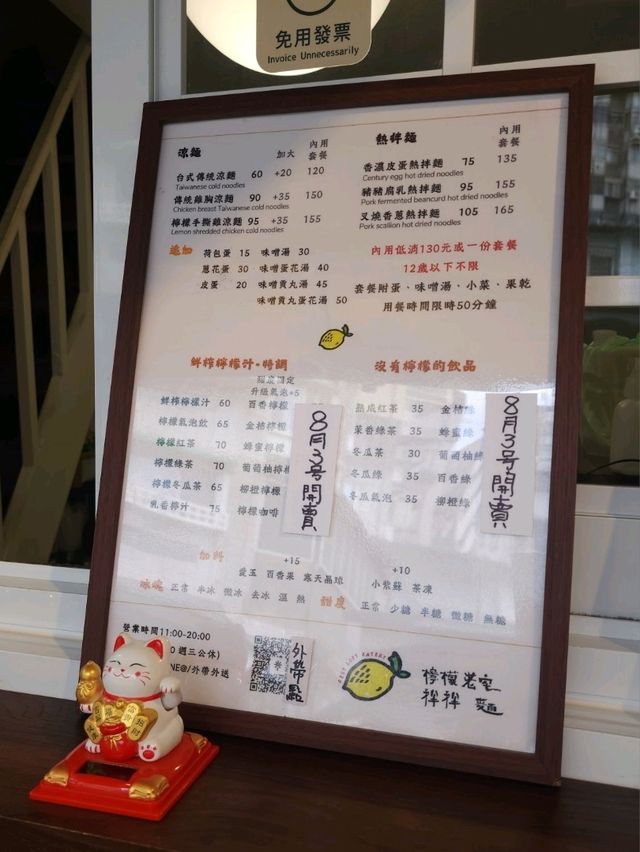 免用發票
Invoice Unnecessarily
涼麵 加大 內用套餐
台式傳統涼麵 60 +20 120
Taiwanese cold noodles
傳統雞胸涼麵 90 +35 150
Chicken breast Taiwanese cold noodles
檸檬手撕雞涼麵 95 +35 155
Lemon shredded chicken cold noodles
追加 荷包蛋 15 味噌湯 30
蔥花蛋 30 味噌蛋花湯 40
皮蛋 20 味噌貢丸湯 45
味噌貢丸蛋花湯 50
熱拌麵 內用套餐
香濃皮蛋熱拌麵 75 135
Century egg hot dried noodles
豬豬腐乳熱拌麵 95 155
Pork fermented beancurd hot dried noodles
叉燒香蔥熱拌麵 105 165
Pork scallion hot dried noodles
內用低消130元或一份套餐
12歲以下不限
套餐附蛋、味噌湯、小菜、果乾
用餐時間限時50分鐘
鮮榨檸檬汁·特調
升級氣泡+5
鮮榨檸檬汁 60 百香檸檬
檸檬氣泡飲 65 金桔檸
檸檬紅茶 70 蜂蜜檸檬
檸檬綠茶 70 葡萄柚檸檬
檸檬冬瓜茶 65 柳橙檸檬
乳香檸汁 75 檸檬咖啡
8月3号開賣
沒有檸檬的飲品
熟成紅茶 35 金桔綠
茉香綠茶 35 蜂蜜綠
冬瓜茶 30 葡萄柚綠
冬瓜綠 35 百香綠
冬瓜氣泡 35 柳橙綠
8月3号開賣
加料 +15 +10
愛玉 百香果 寒天晶球 小紫蘇 茶凍
冰塊 正常 半冰 微冰 去冰 溫 熱 甜度 正常 少糖 半糖 微糖 無糖
營業時間11:00-20:00
0 週三公休)
NE@/外帶外送
外帶點
BEST LOFT EATERY
檸檬老宅
拌拌麵